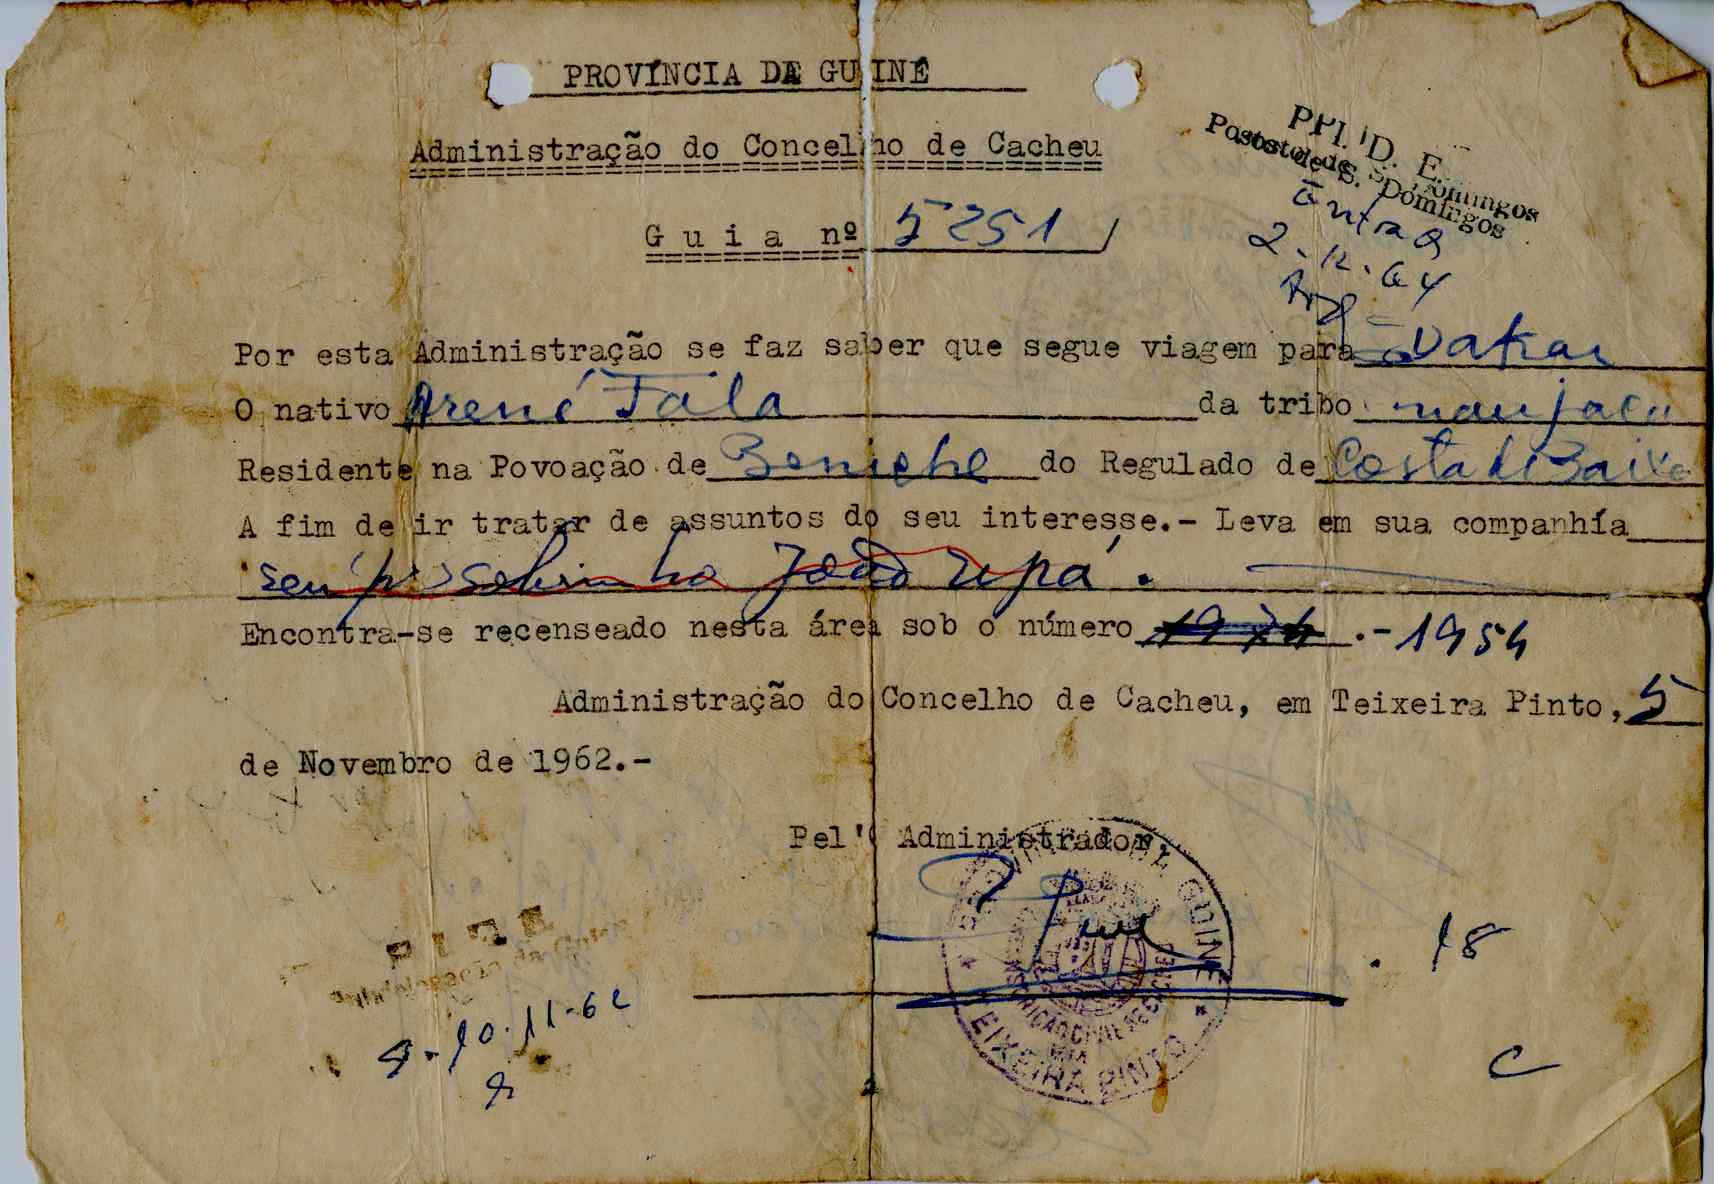 PROVÍNCIA DE GUINÉ
Administração do Concelho de Cacheu
P. I. D. E.
Posto de S. Domingos
Entrada
2.12.64
Guia nº 5251
Por esta Administração se faz saber que segue viagem para Dakar
O nativo Arené Fala da tribo manjaca
Residente na Povoação de Beniche do Regulado de Costa de Baixo
A fim de ir tratar de assuntos do seu interesse.- Leva em sua companhía
seu sobrinho João Upá.
Encontra-se recenseado nesta área sob o número 1974 .- 1954
Administração do Concelho de Cacheu, em Teixeira Pinto, 5
de Novembro de 1962.-
Pel'O Administrador,
GUINÉ
TEIXEIRA PINTO
. 18
P I D E
S. 10.11-62
C